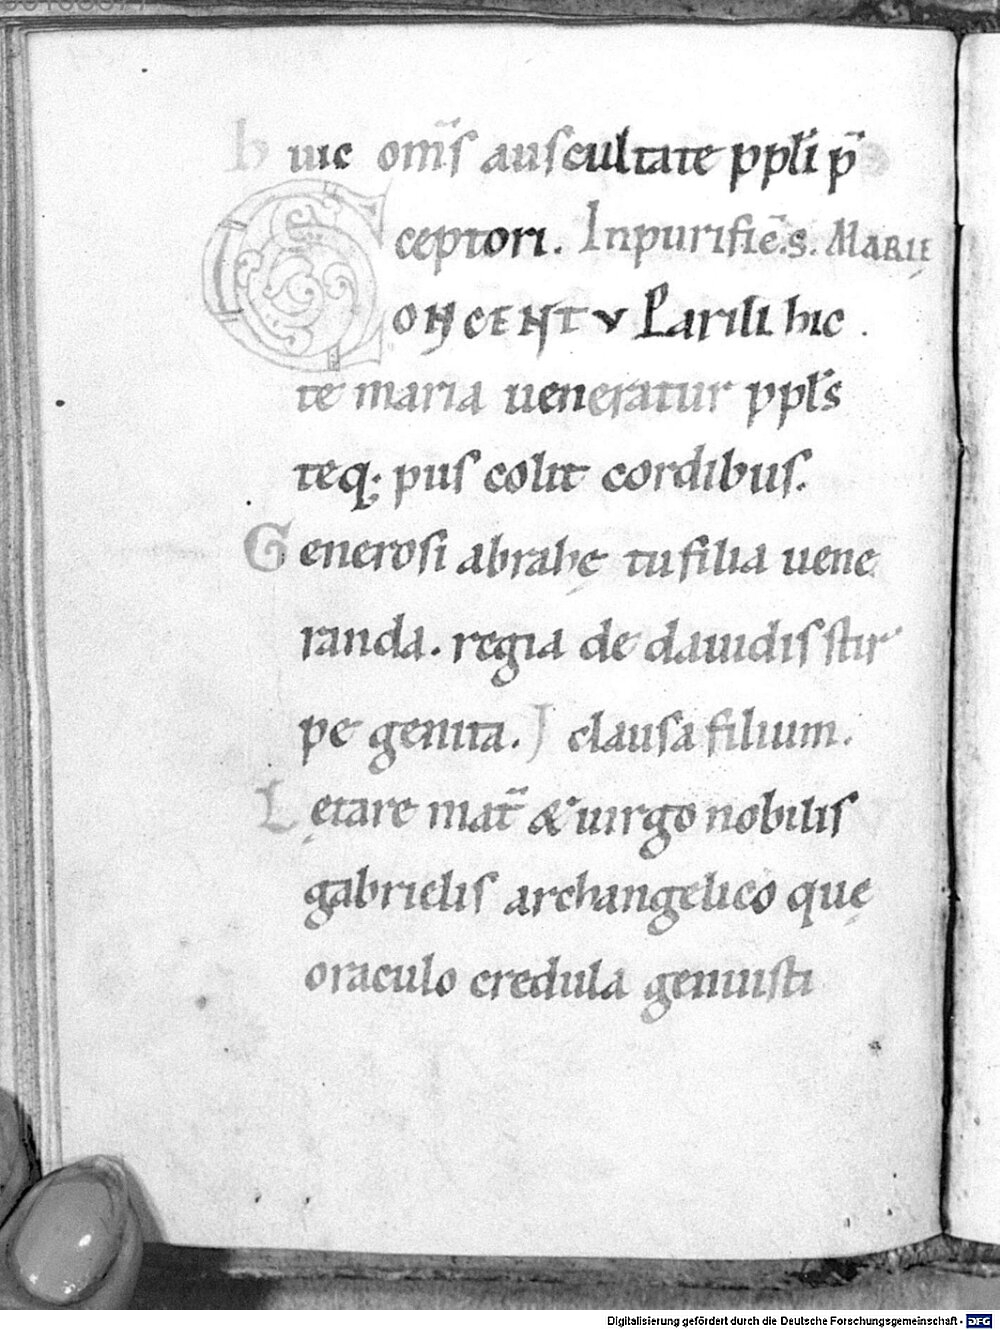 huic om̄s auscultate ppl̄i p̄
ceptori. In purifiē. s. MARIE
CONCENTV Parili hic
te maria ueneratur ppl̄s
teq; pius colit cordibus.
Generosi abrahę tu filia uene
randa. regia de dauidis stir
pe genita. I clausa filium.
Lętare mat̄ & uirgo nobilis
gabrielis archangelico quę
oraculo credula genuisti
Digitalisierung gefördert durch die Deutsche Forschungsgemeinschaft - DFG